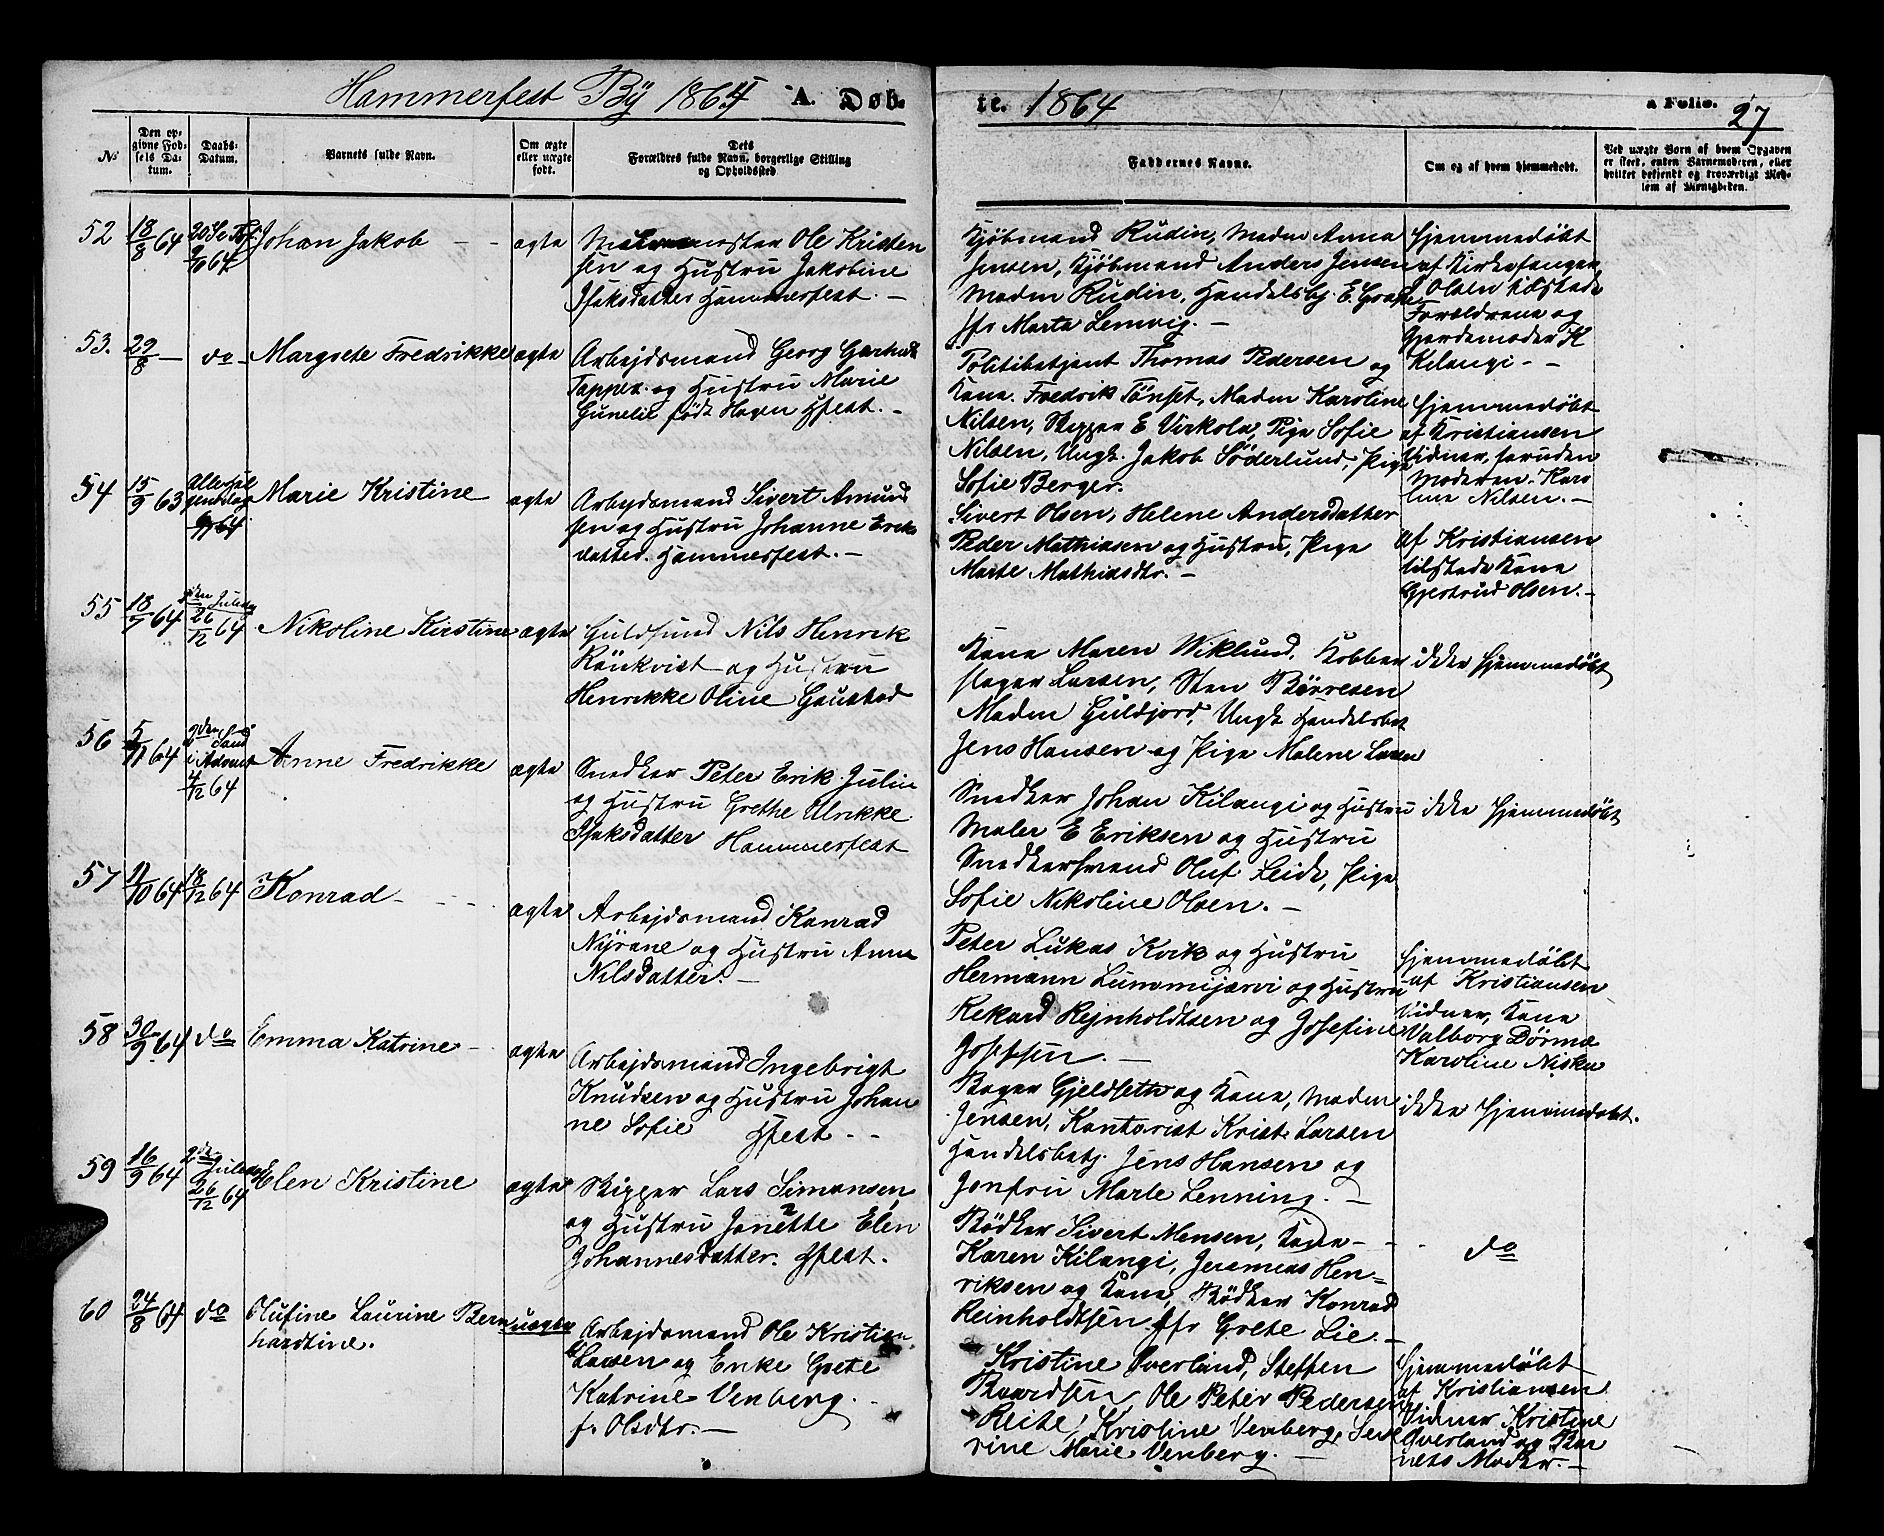 Hammerfest By 1864 A. Døb-
te. 1864 a Folio. 27
No
Den op-
givne Fød-
sels Da-
tum.
Daabs-
Datum.
Barnets fulde Navn.
Om ægte
eller uægte
født.
Dets
Forældres fulde Navn, borgerlige Stilling
og Opholdssted.
Faddernes Navne.
Om og af hvem hjemmedøbt.
Ved uægte Børn af hvem Opgaven
er skeet, enten Barnemoderen, eller
hvilket bekjendt og troværdigt Med-
lem af Menigheden.
52 18/8 64
Johan Jakob - - ægte
Ole Kristen
sen og Hustru Jakobine
Isaksdatter Hammerfest. -
Kjøbmand Rudin, Madm Anna
Jensen, Kjøbmand Anders Jensen
Madm Rudin, Handelsbj. E.
jfr Marta Lemvig. -
Hjemmedøbt
af Kirkesanger
Olsen tilstede
Forældrene og
Gjordemoder K
Kilangi - -
53. 29/8 - do - Margrete Fredrikke ægte
Arbejdsmand Georg
Tapper og Hustru Marie
Gunelie født Hagen Hfest. -
Politibetjent Thomas Pedersen og
Kone. Fredrik Tønset, Madm Karoline
Nilsen, Skipper E Virkola, Pige Sofie
Nilsen, Ungk. Jakob Söderlund, Pige
Sofie Berger.
Hjemmedøbt
af Kristiansen
Vidner, foruden
Moderen. Karo
line Nilsen. -
54 15/9 63 Allehel
gensdag
64 Marie Kristine ægte
Arbejdsmand Sivert Amund
sen og Hustru Johanne Erik
datter. Hammerfest. -
Sivert Olsen, Helene Andersdatter
Peder Mathiasen og Hustru, Pige
Marte Mathiasdtr. -
af Kristiansen
tilstede Kone
Gjertrud Olsen. -
55 18/9 64 2den Juledag
26/12 64 Nikoline Kirstine ægte
Guldsmd Nils Henrik
Rönkvist og Hustru
Henrikke Oline Gaustad
Kone Maren Wiklund, Kobber
slager Larsen, Sten Börresen
Madm Guldjord, Ungk Handelsbet
Jens Hansen og Pige Malene Larsen
ikke Hjemmedøbt
56 5/11 64 2den Sønd
i Advent
4/12 64 Anne Fredrikke ægte
Snedker Peter Erik Julin
og Hustru Grethe Ulrikke
Isaksdatter Hammerfest
Snedker Johan Kilangi og Hustru
Maler E Eriksen og Hustru
Snedkersvend Oluf Leide, Pige
Sofie Nikoline Olsen. -
ikke Hjemmedøbt
57 11/10 64 18/12 64 Konrad - - - ægte
Arbejdsmand Konrad
Nyrane og Hustru Anna
Nilsdatter. -
Peter Lukas Kvik og Hustru
Hermann Lummijarvi og Hustru
Rekard Rejnholdtsen og Josefine
Josefsen. -
Hjemmedøbt
af Kristiansen
Vidner, Kone
Valborg Dörme
Karoline Niska
58 30/9 64 do Emma Katrine - ægte
Arbejdsmand Ingebrigt
Knudsen og Hustru Johan
ne Sofie Hfest - -
Bager Gjeldseth og Kone, Madm
Jensen, Kontorist Krist. Larsen
Handelsbetj. Jens Hansen og
Jomfru Marte Lenning. -
ikke Hjemmedøbt.
59 16/9 64 2den Juledag
26/12 64 Elen Kristine ægte
Skipper Lars Simonsen
og Hustru Janette Elen
Johannesdatter. Hfest.
Bødker Sivert Mensen, Kone -
Karen Kilangi, Jeremias Hen-
riksen og Kone, Bødker Konrad
Reinholdtsen jfr Grete Lie. -
do
60 24/8 64 do Olufine Laurine Bern
hardtine. uægte
Arbejdsmand Ole Kristian
Larsen og Enke Grete
Katrine Venberg. -
f. Olsdtr. -
Kristine Overland, Steffen
Baardsen, Ole Peter Pedersen
Reite, Kristine Venberg, Seve
rine Marie Venberg. -
Hjemmedøbt
af Kristiansen
Vidner Kristine
Overland og Bar
nets Moder. -